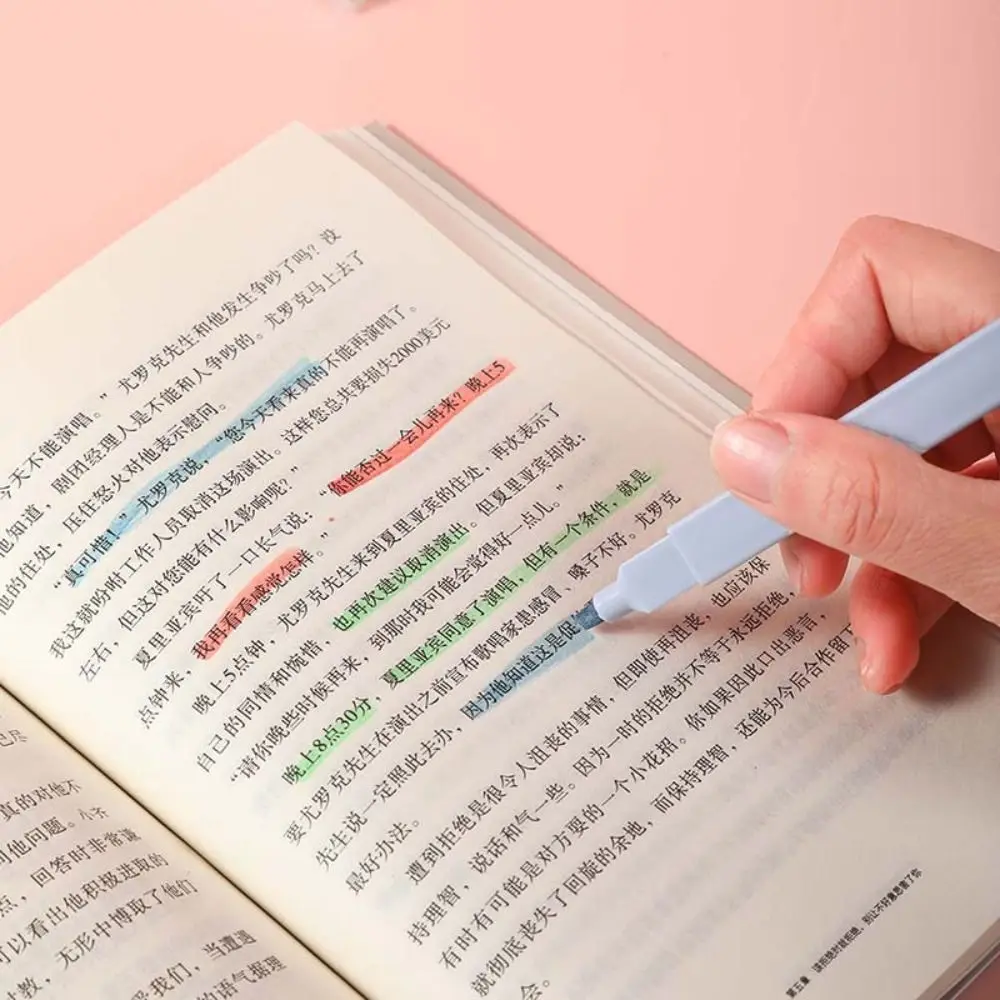 已尽
真的对他不
他问题。小齐
点，回答时非常诚
可以看出他积极进取的
教，无形中博取了他们
我们，当遭遇
的语气据理
今天不能演唱。”尤罗克先生和他发生争吵了吗？没
他知道，剧团经理人是不能和人争吵的。尤罗克马上去了
他的住处，压住怒火对他表示慰问。
“真可惜！”尤罗克说，“您今天看来真的不能再演唱了。
我这就吩咐工作人员取消这场演出。这样您总共要损失2000美元
左右，但这对您能有什么影响呢？”
夏里亚宾吁了一口长气说：“你能否过一会儿再来？晚上5
点钟来，我再看看感觉怎样。”
晚上5点钟，尤罗克先生来到夏里亚宾的住处，再次表示了
自己的同情和惋惜，也再次建议取消演出。但夏里亚宾却说：
“请你晚些时候再来，到那时我可能会觉得好一点儿。”
晚上8点30分，夏里亚宾同意了演唱，但有一个条件，就是
要尤罗克先生在演出之前宣布歌唱家患感冒、嗓子不好。尤罗克
先生说一定照此去办，因为他知道这是促
最好办法。
遭到拒绝是很令人沮丧的事情，但即使再沮丧，也应该保
持理智，说话和气一些。因为一时的拒绝并不等于永远拒绝，
有时有可能是对方耍的一个小花招。你如果因此口出恶言，
就彻底丧失了回旋的余地，而保持理智，还能为今后合作留
会。
第五章 该拒绝时就拒绝，别让不好意思害了你